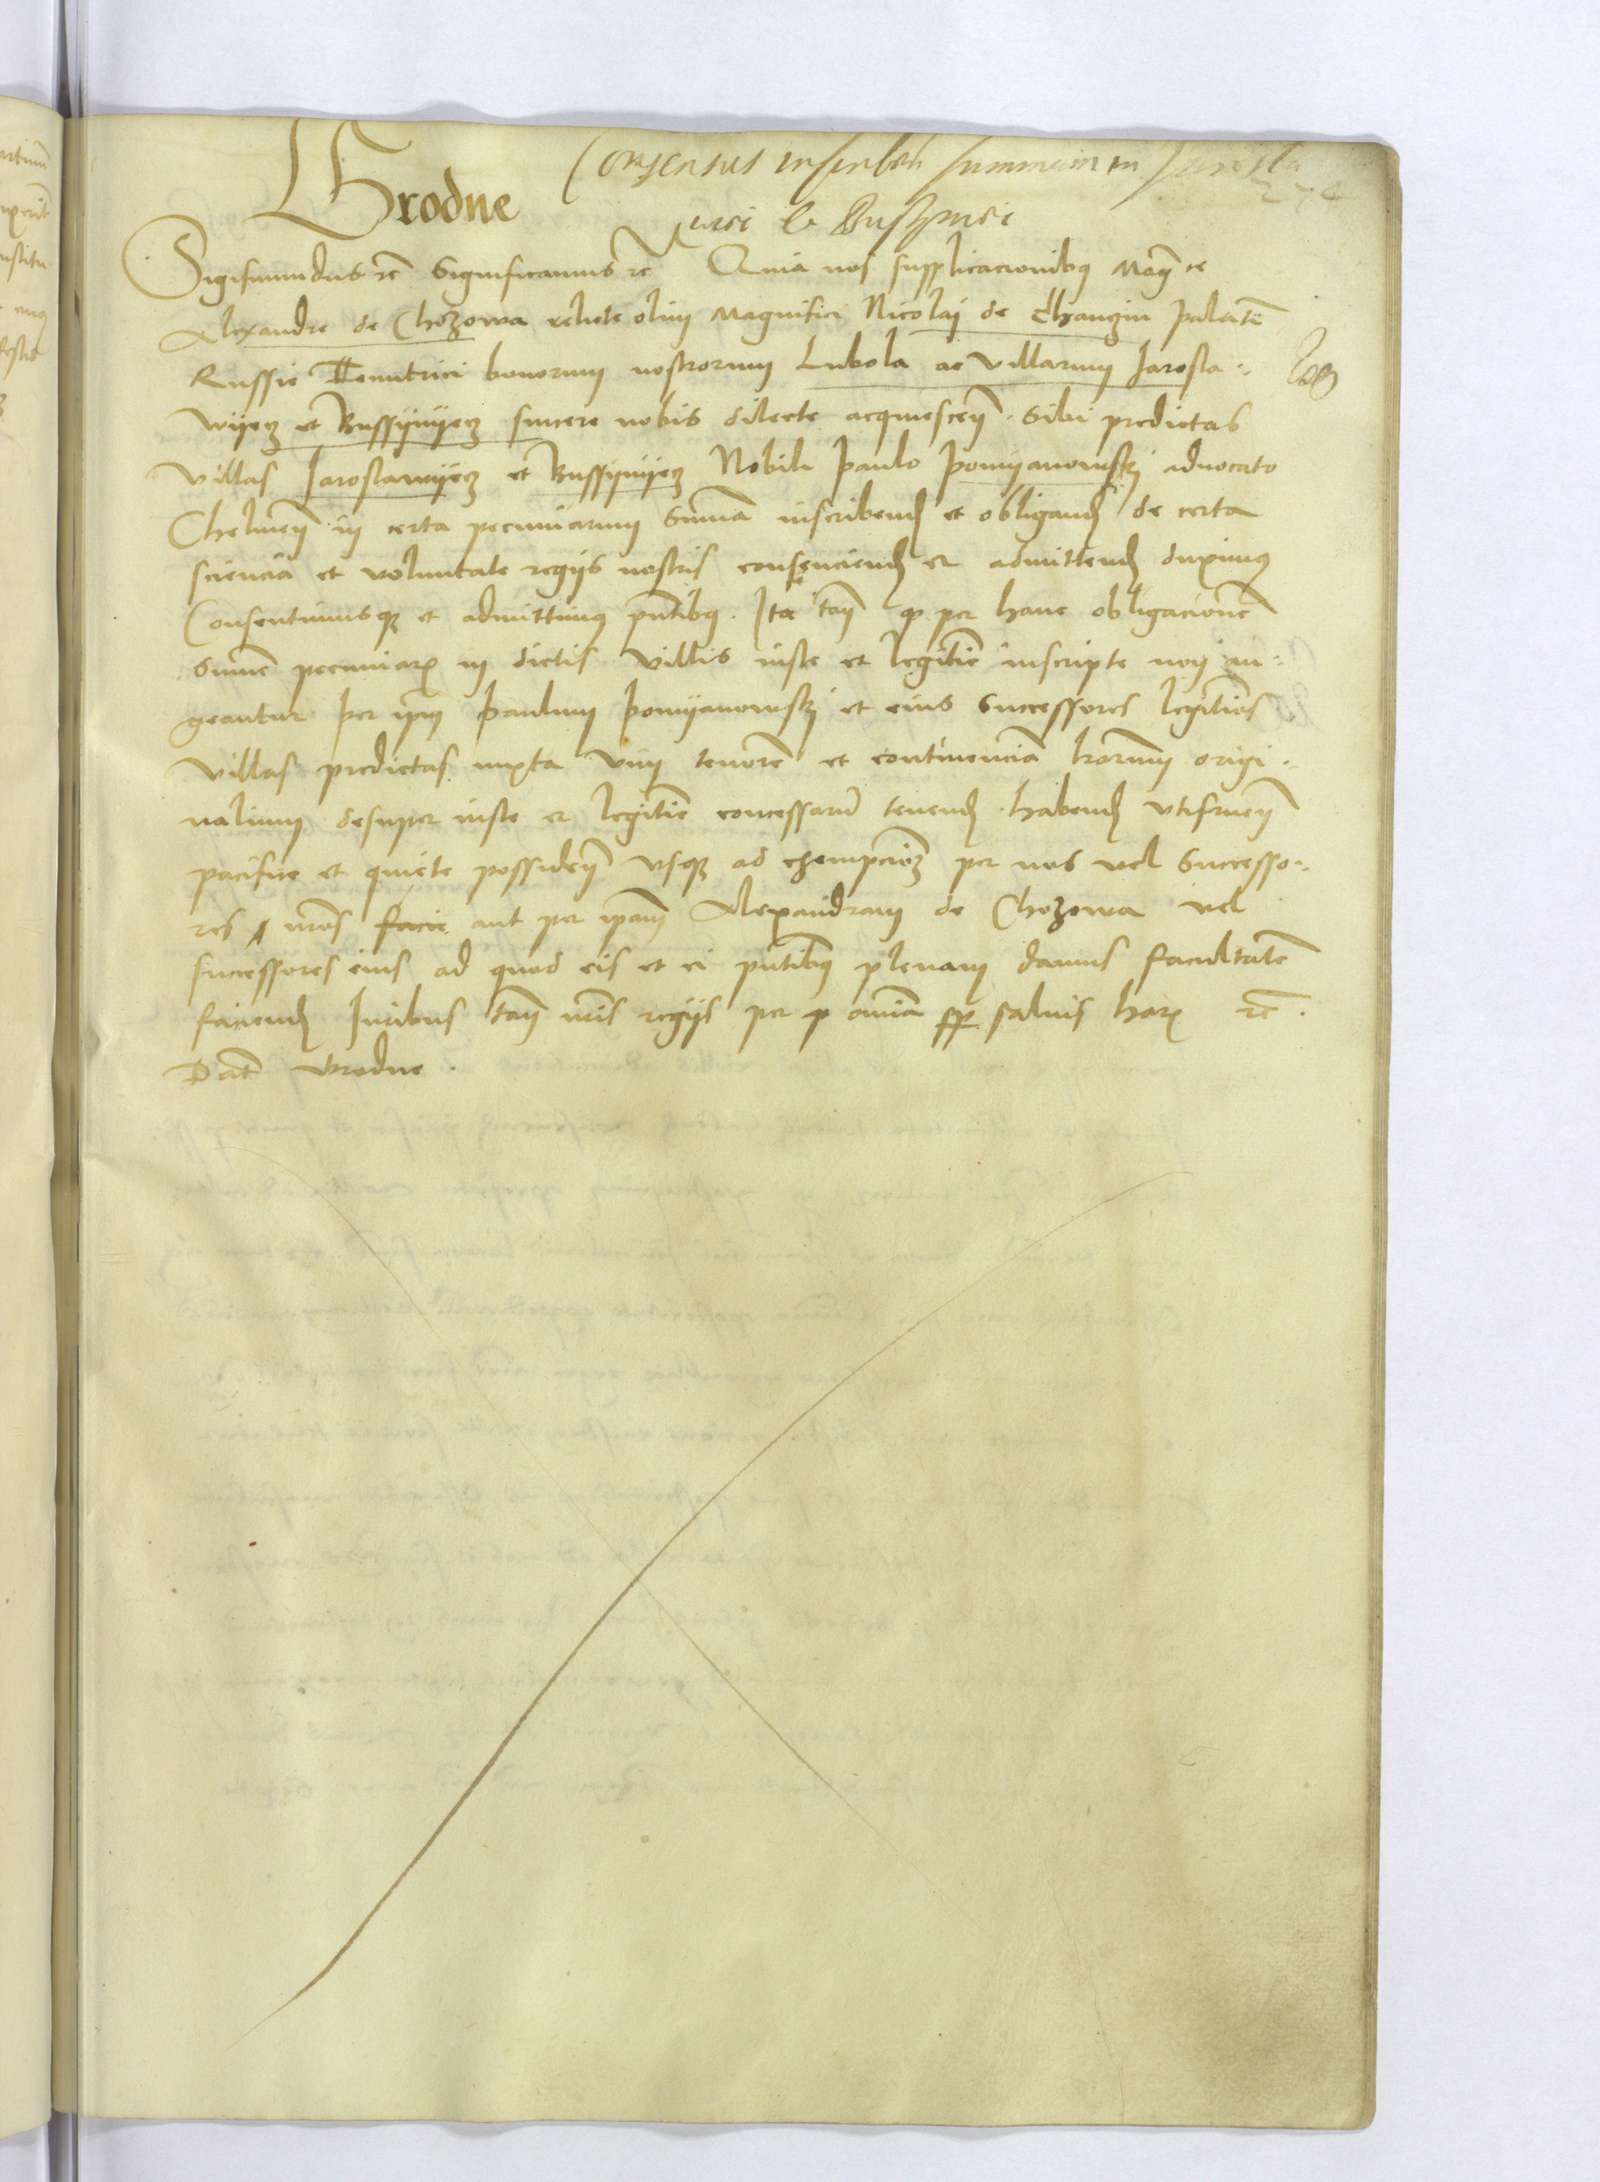 Grodne
Consensus inscriben summam in Jarosla
wiecz et Bussyniecz
Sigismundus rc Significamus rc Quia nos supplicacionibus Magce
Alexandre de Chozowa relicte olim Magnifici Nicolaj de Chanczin Palatni
Russie Tenutrici bonorum nostrorum Lubola ac Villarum Jarosla
wyecz et Bussynyecz sincere nobis dilecte acquiescen. Sibi predictas
Villas Jaroslawyecz et Bussynyecz Nobili Paulo Pomyanowskj advocato
Chelmen in certa pecuniarum Summa inscribend et obligand de certa
sciencia et voluntate regijs nostris consenciend et admittend duximus
Consentimusque et admittimus pntibus. Ita tamen quod per hanc obligacionem
Summe pecuniarum in dictis Villis iuste et legitime inscripte non au
geantur Per ipm Paulum Pomyanowskj et eius Successores legitimos
Villas predictas iuxta vim tenorem et continenciam lrarum origi
nalium desuper iuste et legitime concessarum tenend. habend Utifruen
pacifice et quiete possiden usque ad exempcionem per nos vel Successo
res nros aut per ipam Alexandram de Chozowa vel
successores eius ad quod eis et ei pntibus plenam damus facultatem
faciend Juribus tamen nris regijs per omnia semper saluis harum rc.
Dat Grodne.